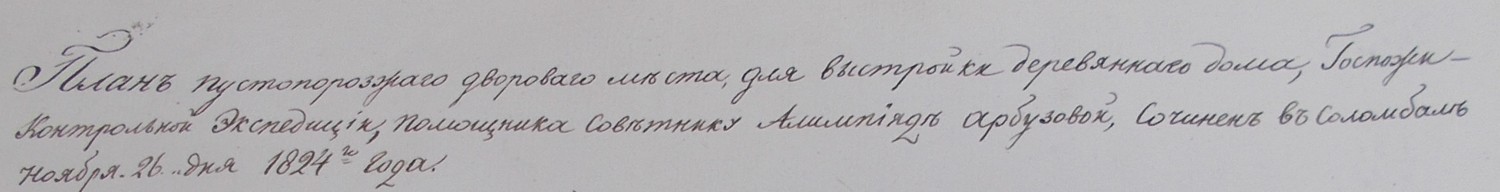 Планъ пустопорозжаго двороваго мѣста, для выстройки деревяннаго дома, Госпожи
Контрольной Экспедиціи, помощника Совѣтнику Алимпіядѣ арбузовой, Сочиненъ въ Соломбалѣ
Ноября. 26. дня 1824го Года.